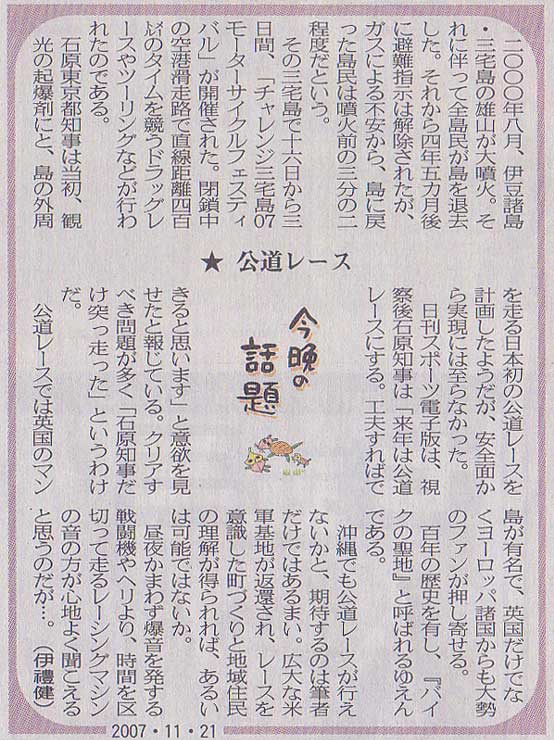 ★ 公道レース
今晩の
話題
二〇〇〇年八月、伊豆諸島
・三宅島の雄山が大噴火。そ
れに伴って全島民が島を退去
した。それから四年五カ月後
に避難指示は解除されたが、
ガスによる不安から、島に戻
った島民は噴火前の三分の二
程度だという。
その三宅島で十六日から三
日間、「チャレンジ三宅島07
モーターサイクルフェスティ
バル」が開催された。閉鎖中
の空港滑走路で直線距離四百
㍍のタイムを競うドラッグレ
ースやツーリングなどが行わ
れたのである。
石原東京都知事は当初、観
光の起爆剤にと、島の外周
を走る日本初の公道レースを
計画したようだが、安全面か
ら実現には至らなかった。
日刊スポーツ電子版は、視
察後石原知事は「来年は公道
レースにする。工夫すればで
きると思います」と意欲を見
せたと報じている。クリアす
べき問題が多く「石原知事だ
け突っ走った」というわけ
だ。
公道レースでは英国のマン
島が有名で、英国だけでな
くヨーロッパ諸国からも大勢
のファンが押し寄せる。
百年の歴史を有し、『バイ
クの聖地』と呼ばれるゆえん
である。
沖縄でも公道レースが行え
ないかと、期待するのは筆者
だけではあるまい。広大な米
軍基地が返還され、レースを
意識した町づくりと地域住民
の理解が得られれば、あるい
は可能ではないか。
昼夜かまわず爆音を発する
戦闘機やヘリより、時間を区
切って走るレーシングマシン
の音の方が心地よく聞こえる
と思うのだが…。(伊禮健)
2007・11・21